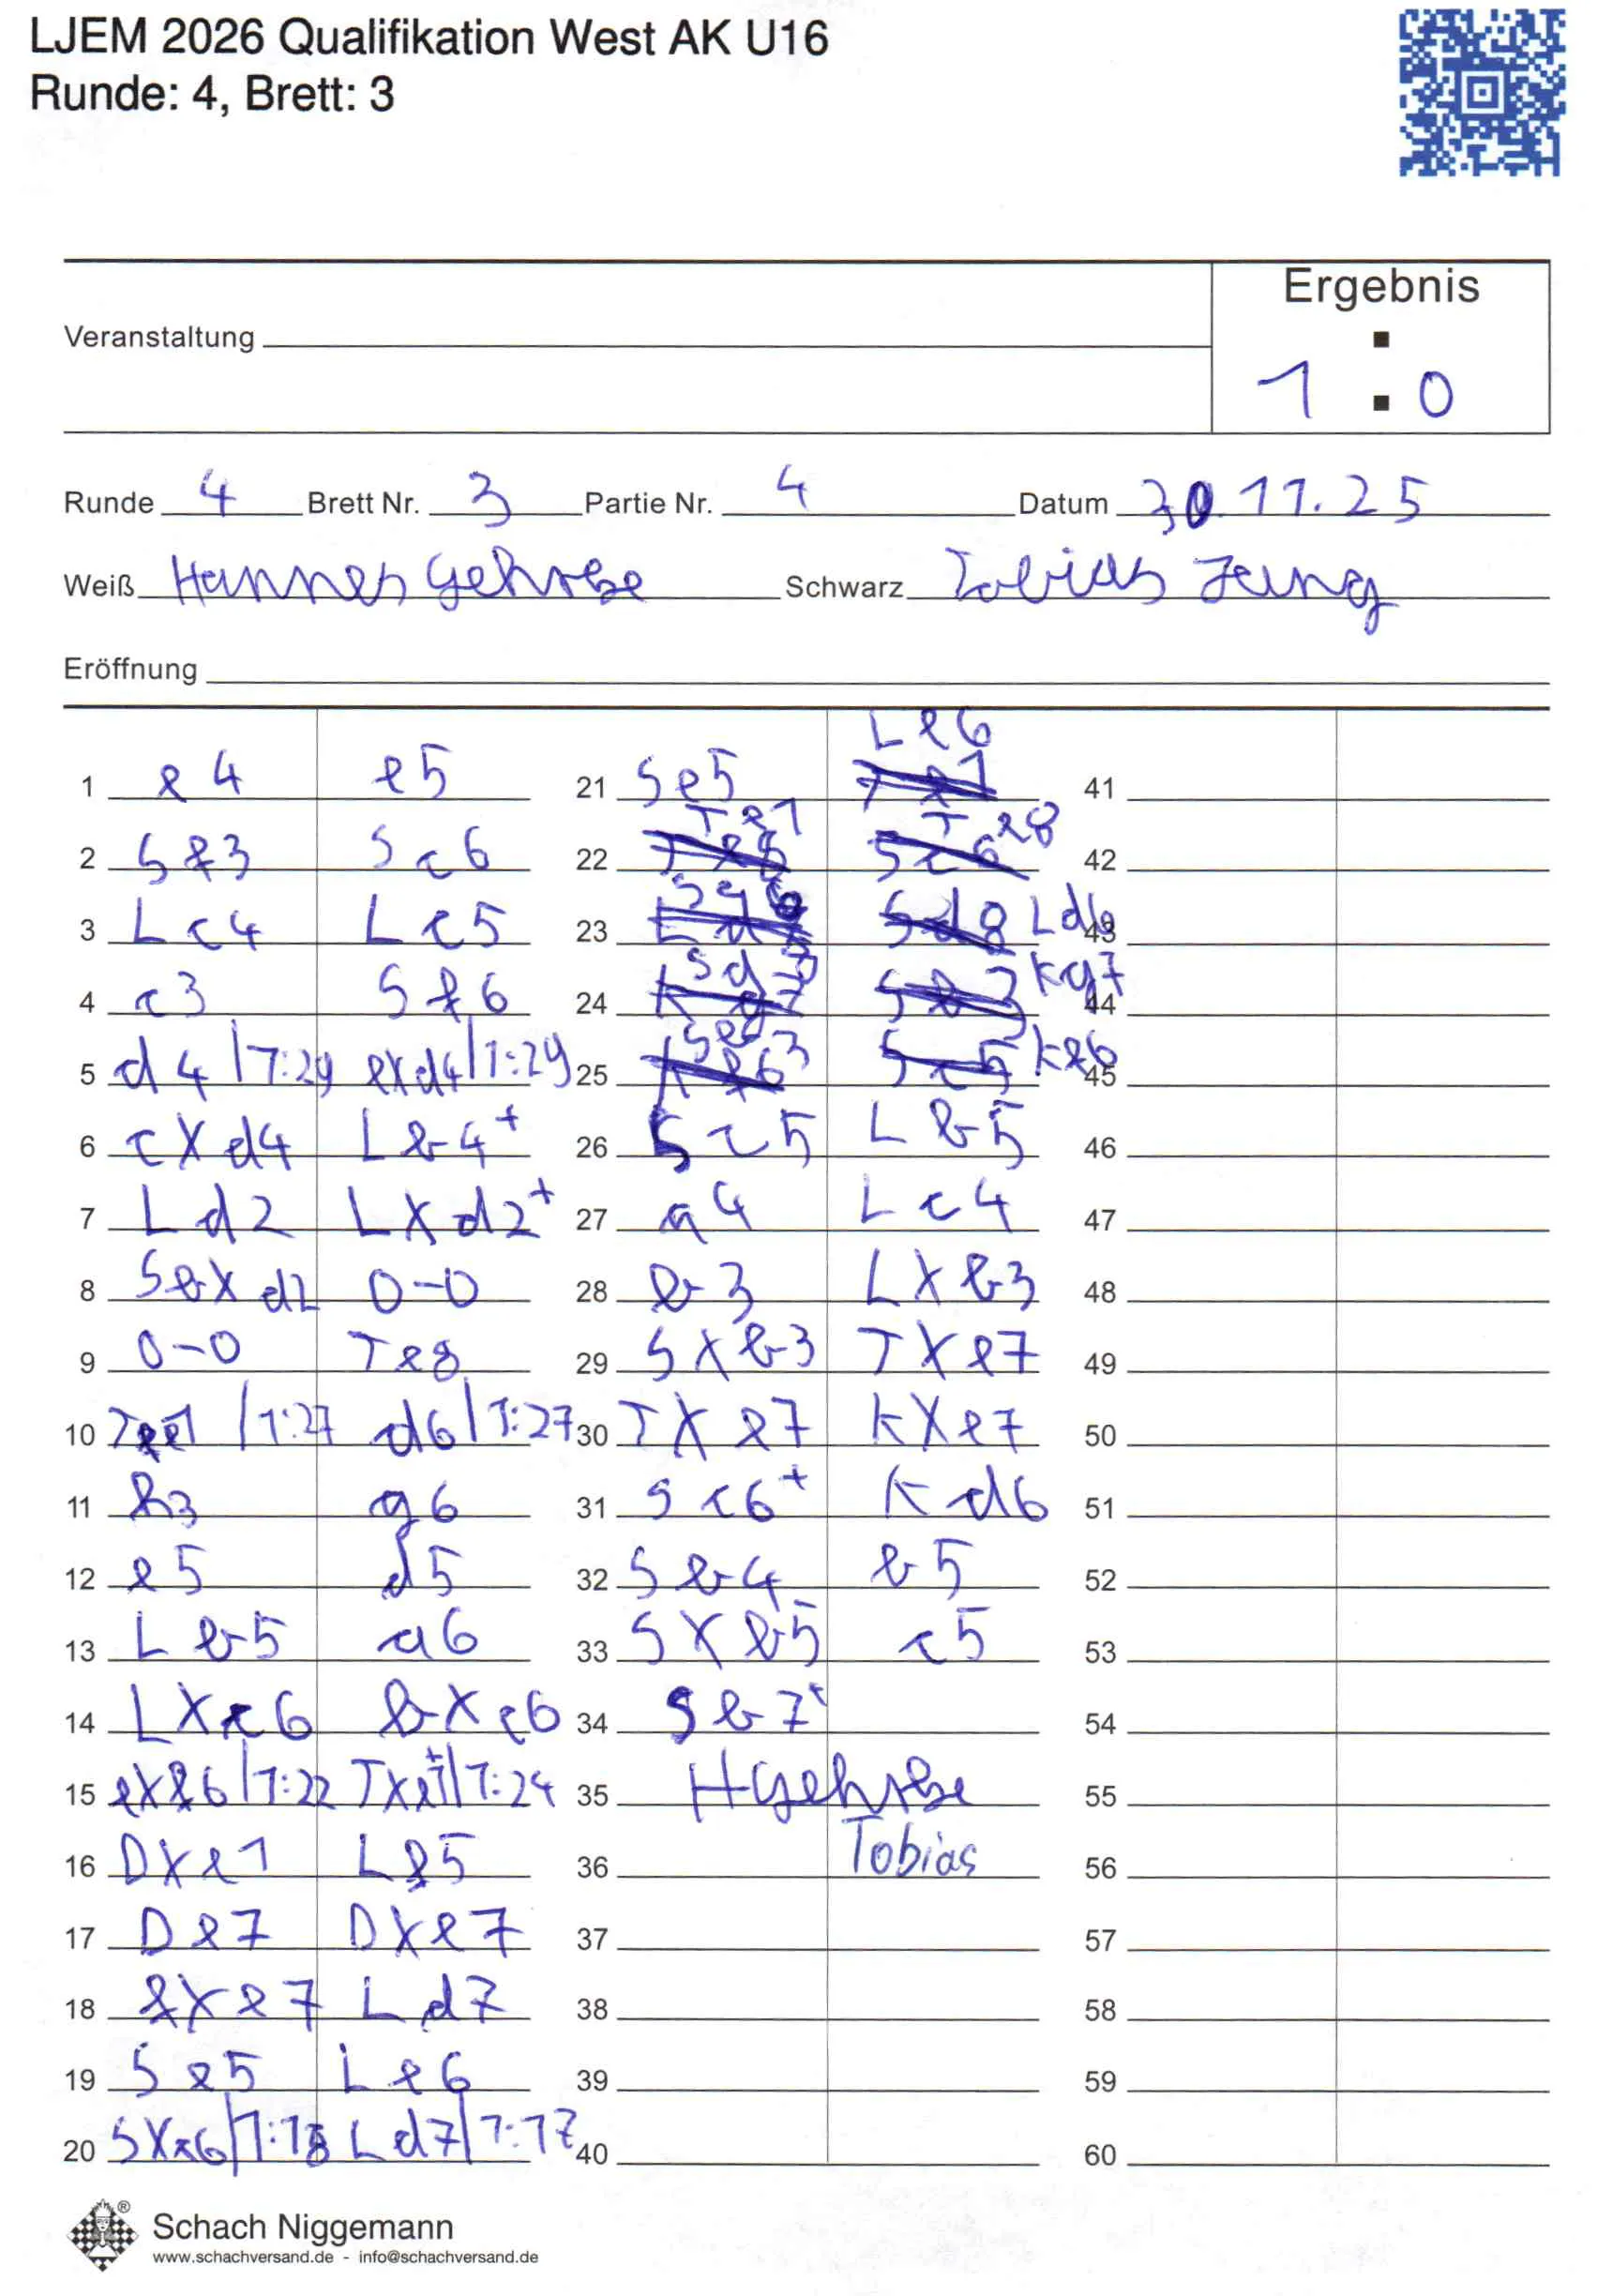 LJEM 2026 Qualifikation West AK U16
Runde: 4, Brett: 3
Ergebnis
Veranstaltung
1 : 0
Runde 4 Brett Nr. 3 Partie Nr. 4 Datum 30.11.25
Weiß Hannes Gehrke Schwarz Tobias Jung
Eröffnung
1 e4 e5
2 Sf3 Sc6
3 Lc4 Lc5
4 c3 Sf6
5 d4 /1:29 exd4/1:29
6 cXd4 Lb4+
7 Ld2 LXd2+
8 SbXd2 0-0
9 0-0 Te8
10 Te1 /1:27 d6/1:27
11 h3 g6
12 e5 d5
13 Lb5 a6
14 LXc6 bXc6
15 eXf6/1:22 TXe1+/1:24
16 DXe1 Lf5
17 De7 DXe7
18 fXe7 Ld7
19 Se5 Le6
20 SXc6/1:18 Ld7/1:17
21 Se5 Le6
22 Te1 Te8
23 Sg6 Ld6
24 Sd3 Kg7
25 Se3 Kf6
26 Sc5 Lb5
27 a4 Lc4
28 b3 LXb3
29 SXb3 TXe7
30 TXe7 KXe7
31 Sc6+ Kd6
32 Sb4 b5
33 SXb5 c5
34 Sb7+
35 HGehrke
36 Tobias
37
38
39
40
41
42
43
44
45
46
47
48
49
50
51
52
53
54
55
56
57
58
59
60
Schach Niggemann
www.schachversand.de - info@schachversand.de